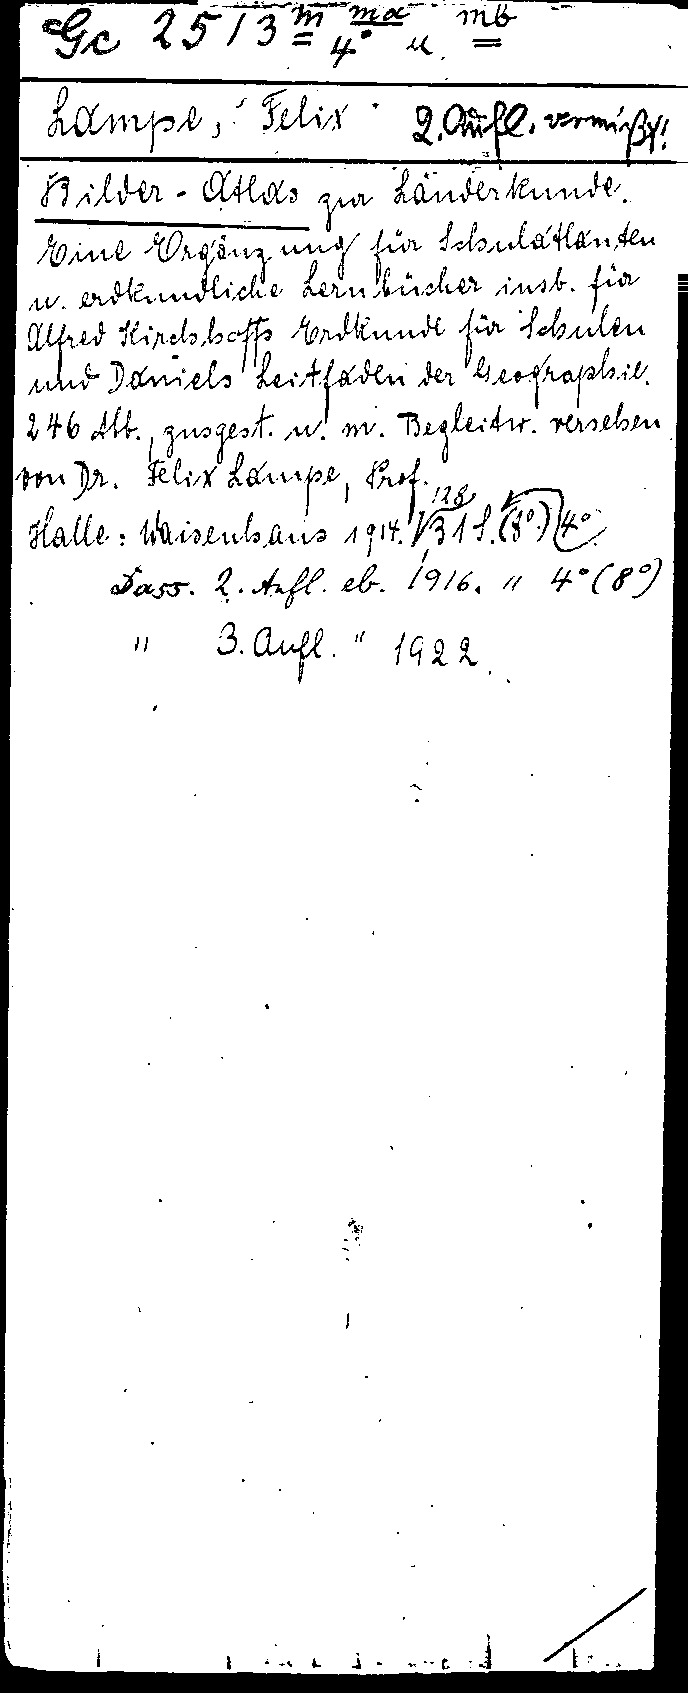 Gc 2513 m ma 4° u. mb
Lampe, Felix 2. Aufl. vermißt!
Bilder-Atlas zur Länderkunde.
Eine Ergänzung für Schulatlanten
u. erdkundliche Lernbücher insb. für
Alfred Kirchhoffs Erdkunde für Schulen
und Daniels Leitfaden der Geographie.
246 Abb., zusgest. u. m. Begleitw. versehen
von Dr. Felix Lampe, Prof.
128
Halle: Waisenhaus 1914. 31 S. (8°) 4°.
Dass. 2. Aufl. eb. 1916. " 4° (8°)
" 3. Aufl. " 1922.